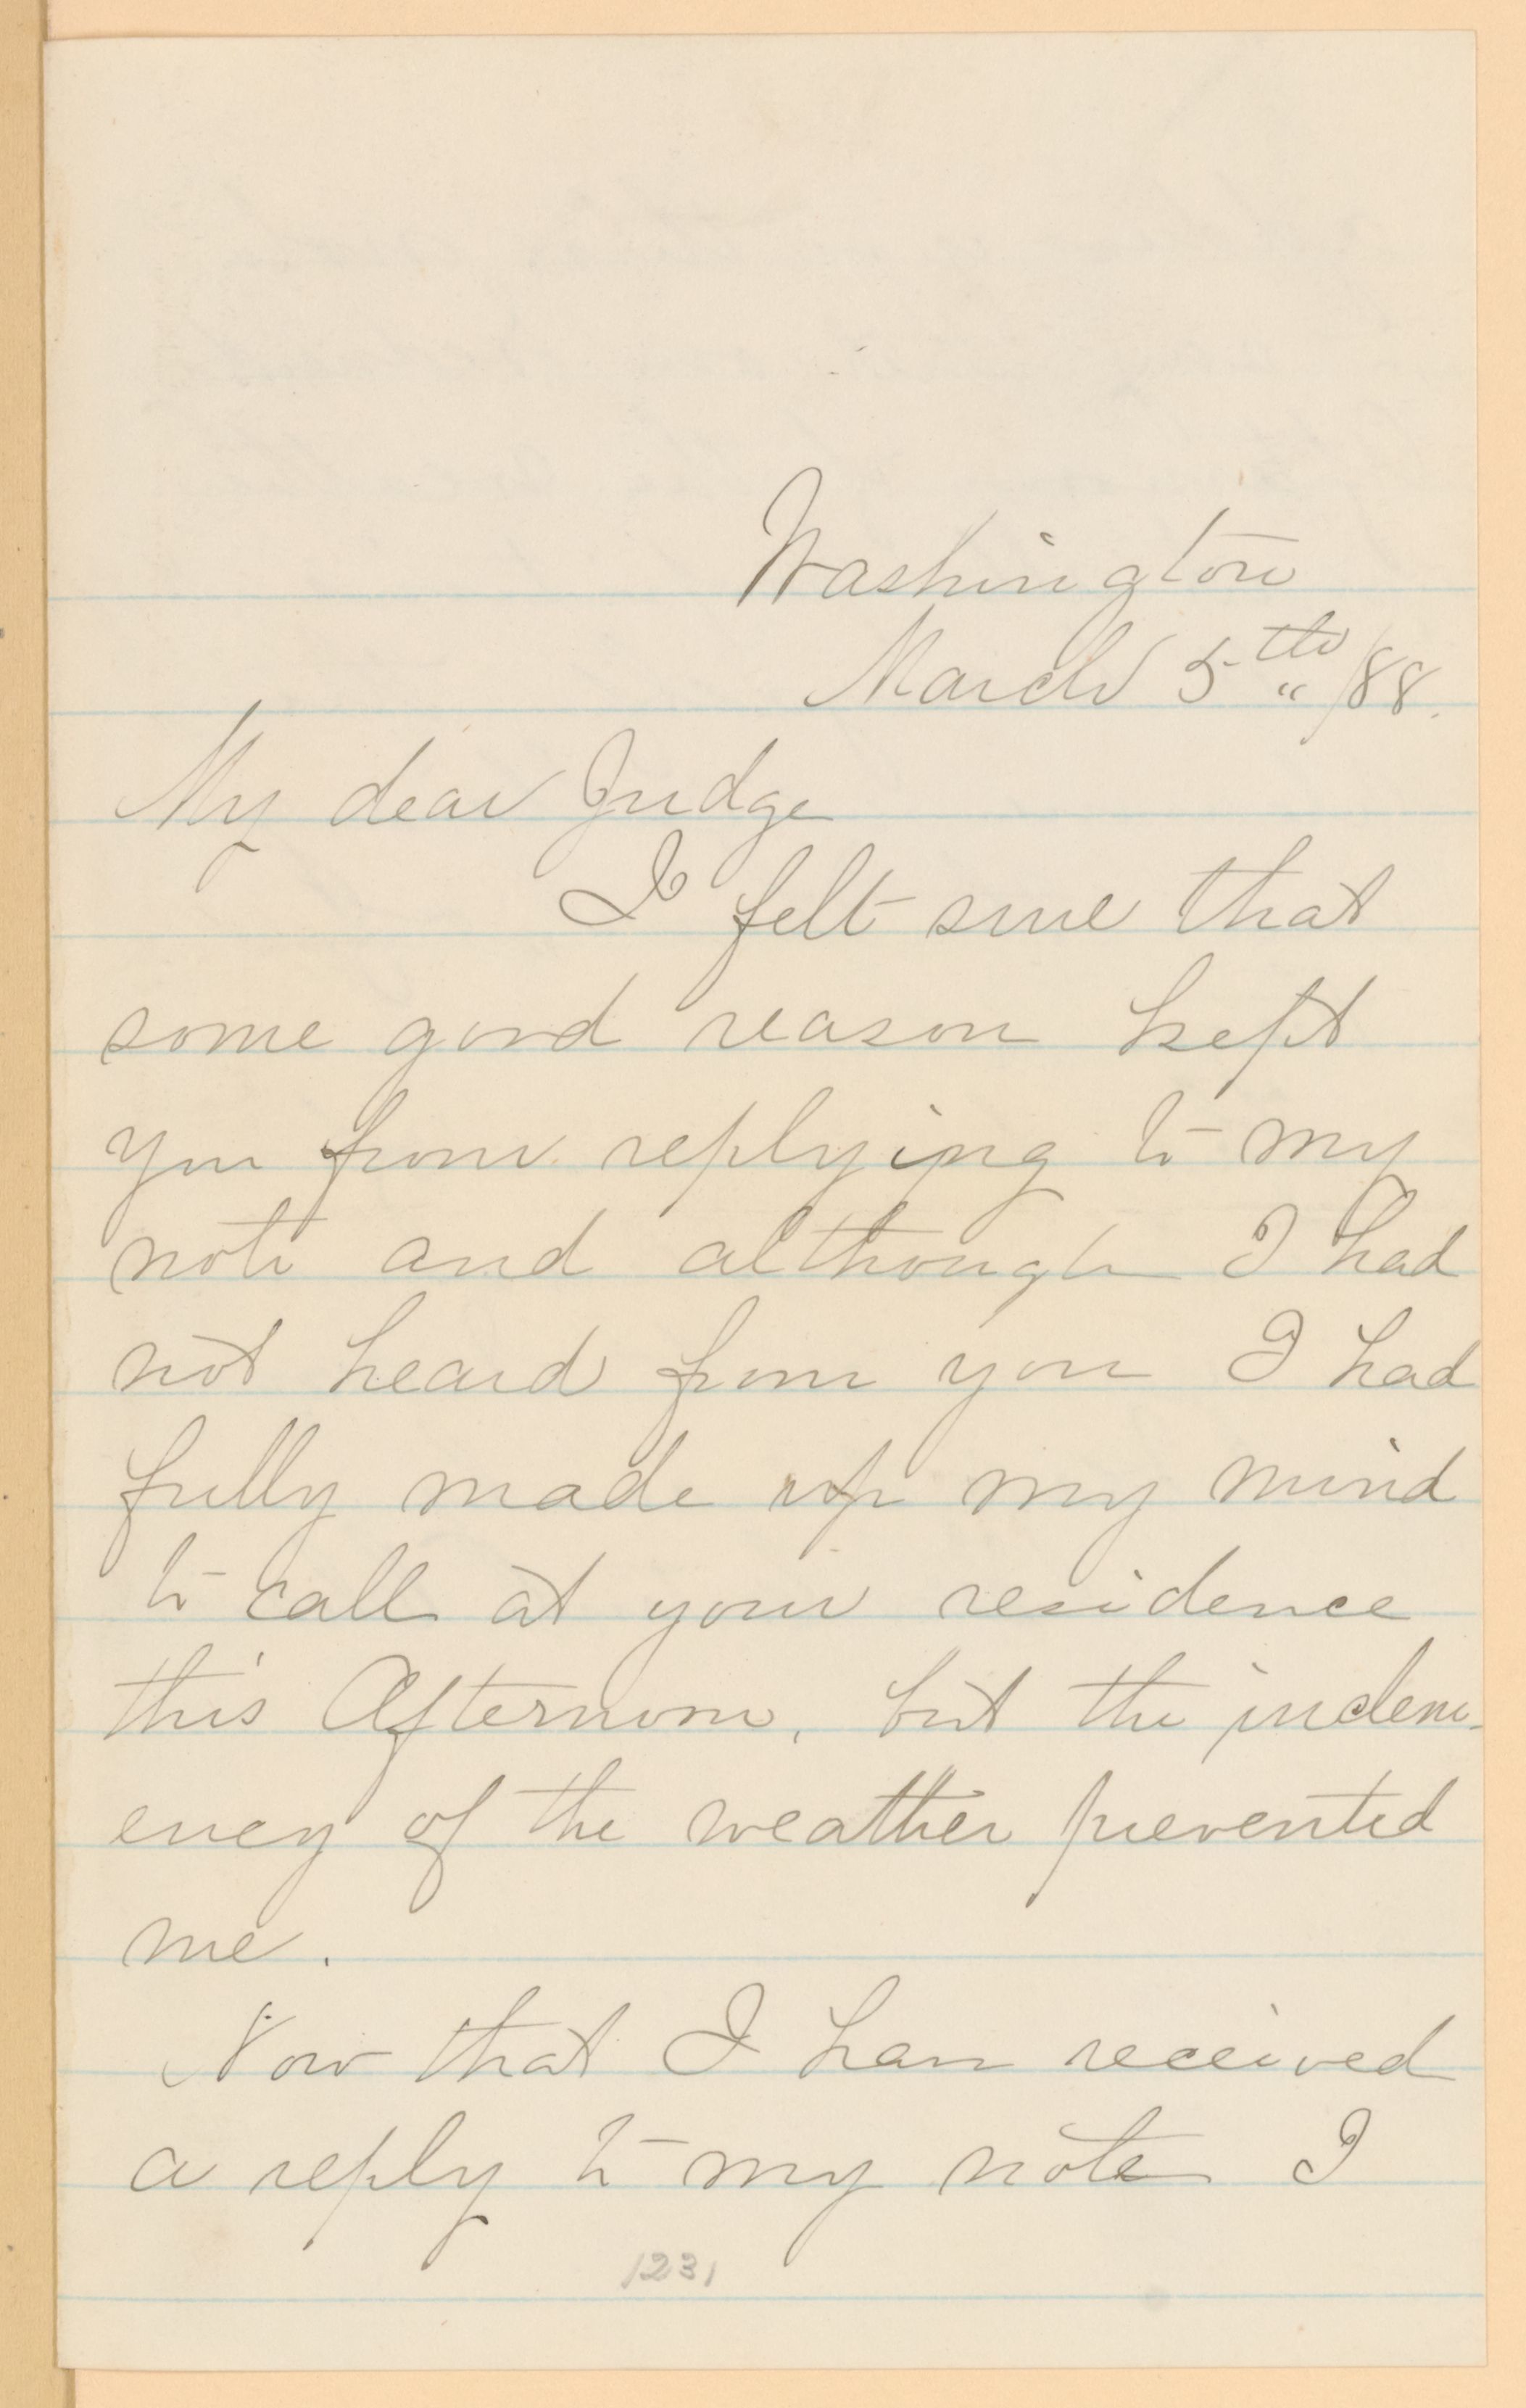 Washington
March 5th /88.
My dear Judge
I felt sure that
some good reason kept
you from replying to my
note and although I had
not heard from you I had
fully made up my mind
to call at your residence
this Afternoon, but the inclem-
ency of the weather prevented
me.
Now that I have received
a reply to my note I
1231